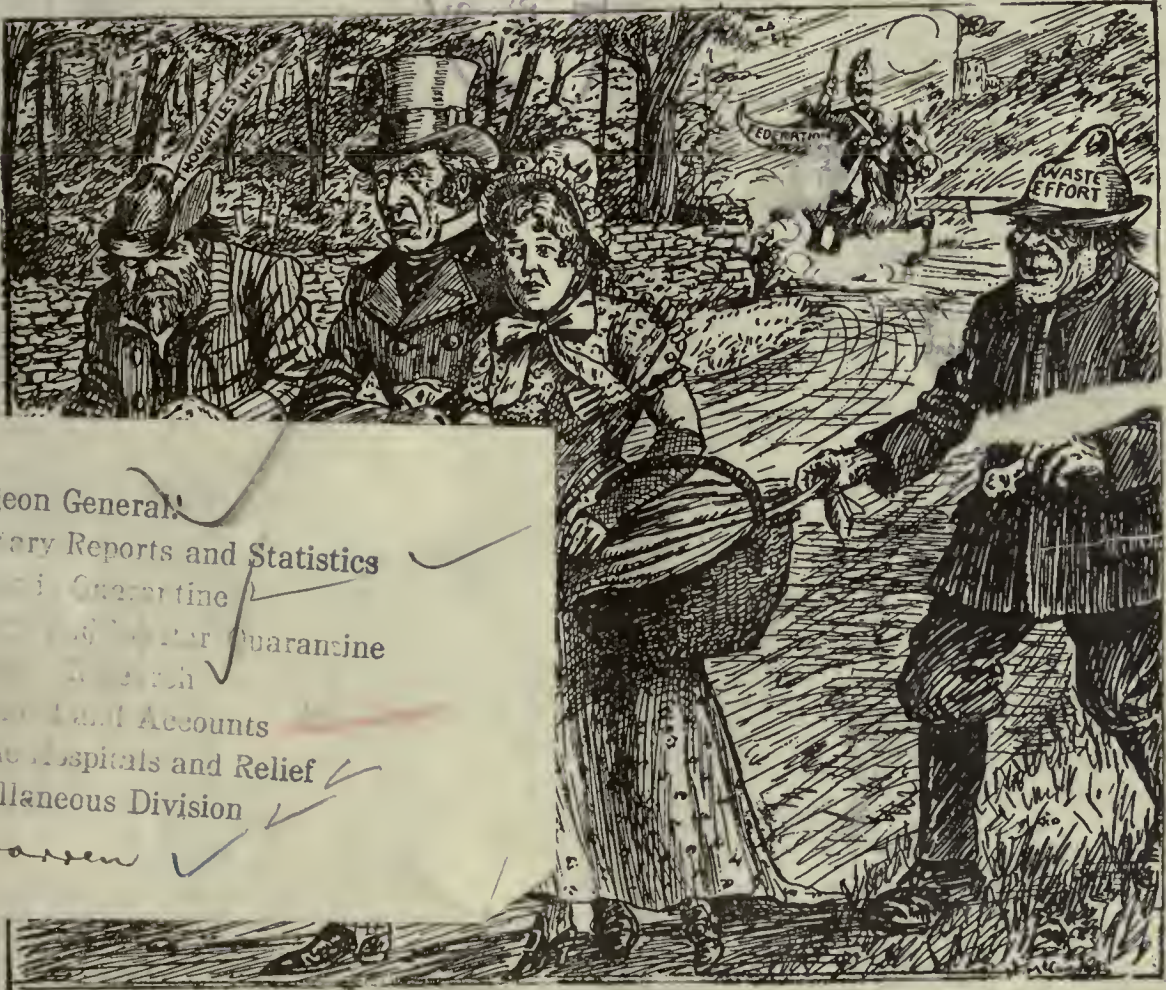 HOUGHTLESSNES
FEDERATION
WASTE
EFFORT
eon General
ary Reports and Statistics
Quarantine
Quarantine
and Accounts
Hospitals and Relief
llaneous Division